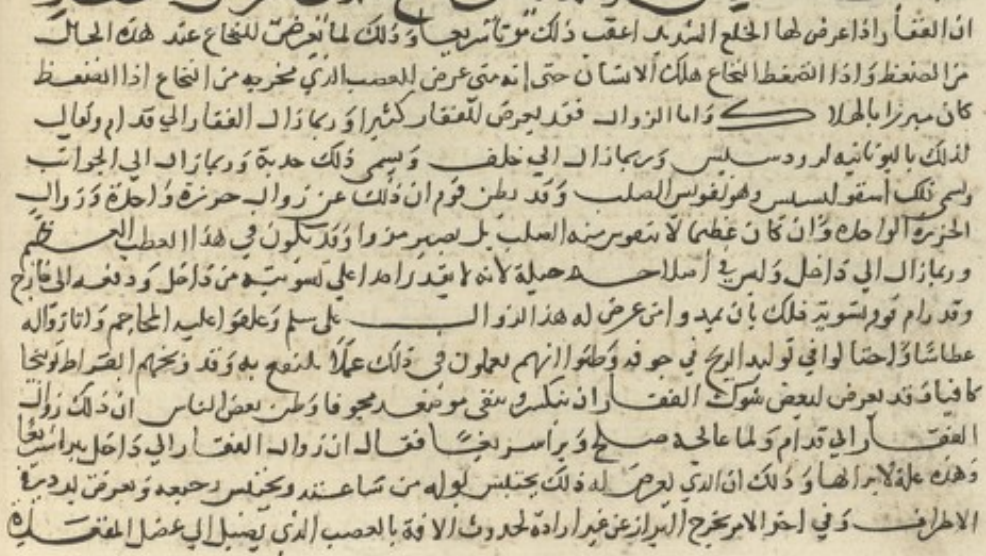 ان الفقار اذا عرض لها الخلع الشديد اعقب ذلك موتا سريعا وذلك لما يعرض للنخاع عند هذه الحال
من الضغط واذا انضغط النخاع هلك الانسان حتى انه متى عرض للعصب الذي مخرجه من النخاع اذا انضغط
كان مبرزا بالهلاك واما الزوال فقد يعرض للفقار كثيرا وربما زال الفقار الي قدام ويقال
لذلك باليونانيه لوردسيس وربما زال الي خلف ويسمى ذلك حدبة وربما زال الي الجوانب
وسمي ذلك اسقوليسيس وهو تقويس الصلب وقد يظن قوم ان ذلك عن زوال خرزة واحدة وزوال
الخرزة الواحده وان كان عظيما لا يتقوس منه الصلب بل يصير مزوا وقد يكون في هذا العطب العظيم
وربما زال الي داخل وليس في اصلاحه حيلة لانه لا يقدر احد علي تسويته من داخل ودفعه الى خارج
وقد رام قوم تسوية ذلك بان يمدوا من عرض له هذا الزوال على سلم وعلقوا عليه المحاجم واثاروا له
عطاسا واحتالوا في توليد الريح في جوفه وظنوا انهم يعملون في ذلك عملا ينتفع به وقد وبخهم ابقراط توبيخا
كافيا وقد يعرض لبعض شوك الفقار ان ينكسر ويبقى موضعه مجوفا وظن بعض الناس ان ذلك زوال
الفقار الي قدام ولما عالجه صلح وبرا سريعا فقال ان زوال الفقار الي داخل يبرا سريعا
وهذه علة لا برا لها وذلك ان الذي يعرض له ذلك يحتبس بوله من ساعته ويحتبس رجيعه ويعرض له برد
الاطراف وفي اخر الامر يخرج البراز عن غير ارادة لحدوث الافة بالعصب الذي يتصل الي عضل المقعدة